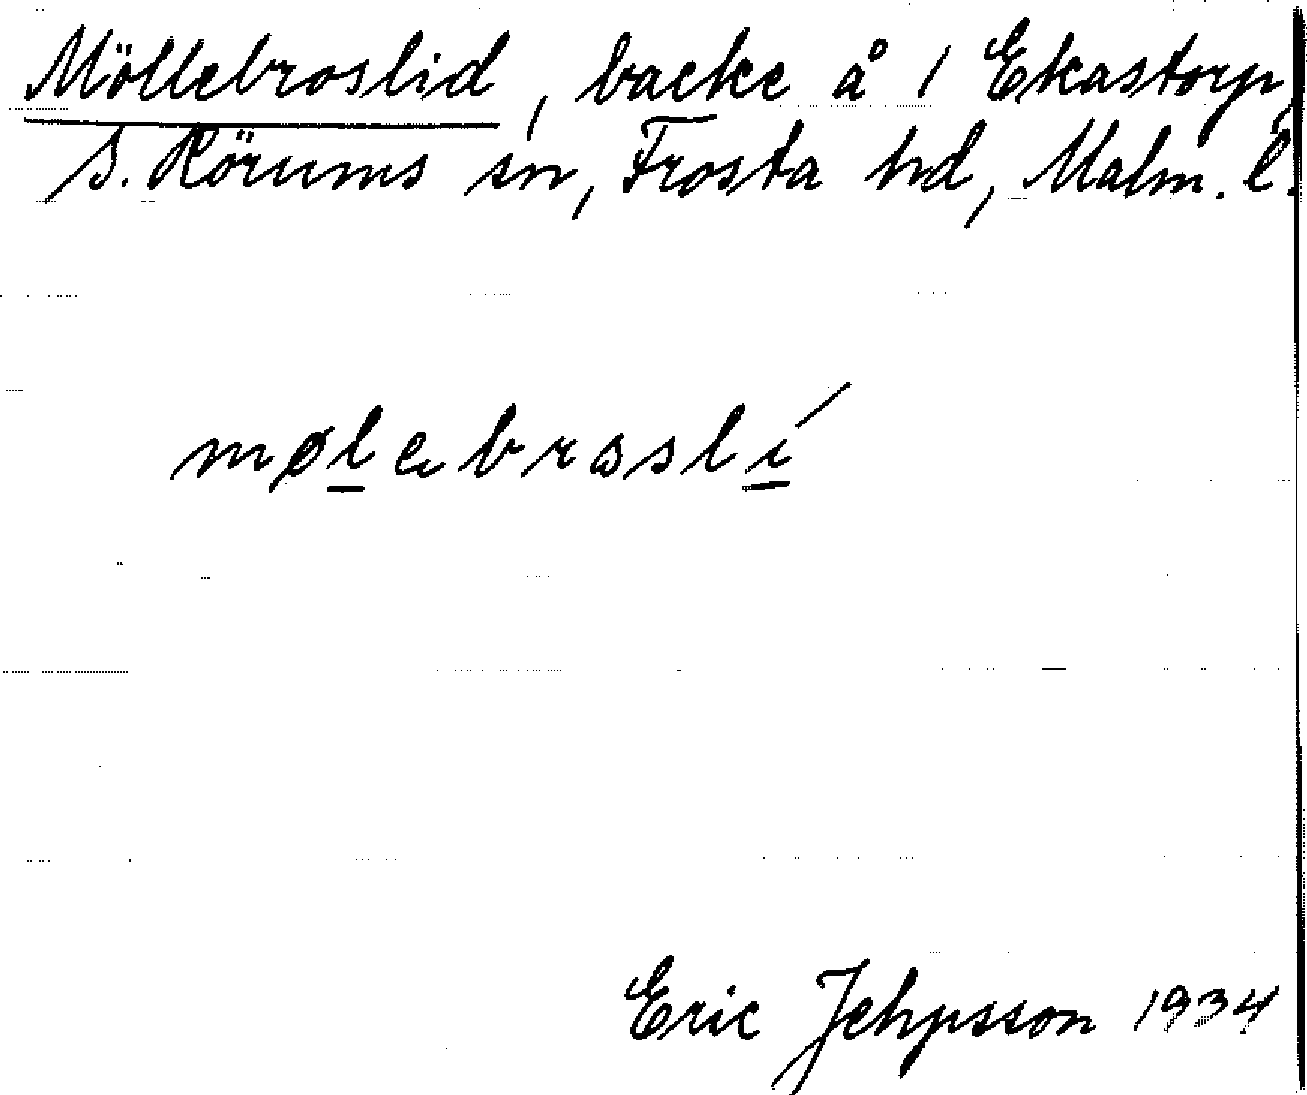 Möllebroslid, backe å 1 Ekastorp,
S. Rörums sn, Frosta hd, Malm. l.
mølebrasli
Eric Jehpsson 1934